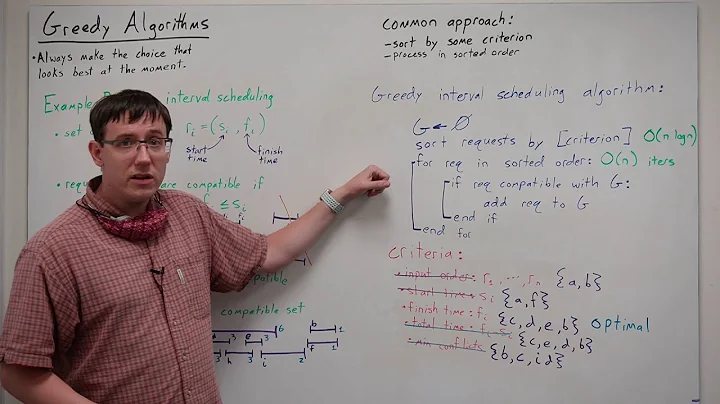 Greedy Algorithms
• Always make the choice that
looks best at the moment.
Example interval scheduling
• set rᵢ = (sᵢ, fᵢ)
start time
finish time
• are compatible if
≤ sᵢ
compatible set
6 b 1
3 e 3
3 h i 2 f 1
Common approach:
- sort by some criterion
- process in sorted order
Greedy interval scheduling algorithm:
G ← ∅
sort requests by [criterion] O(n log n)
for req in sorted order: O(n) iters
if req compatible with G:
add req to G
end if
end for
Criteria:
• input order: r₁, ..., rₙ {a,b}
• start time: sᵢ {a,f}
• finish time: fᵢ {c,d,e,b} optimal
• total time: fᵢ-sᵢ {c,e,d,b}
• min conflicts {b,c,i,d}